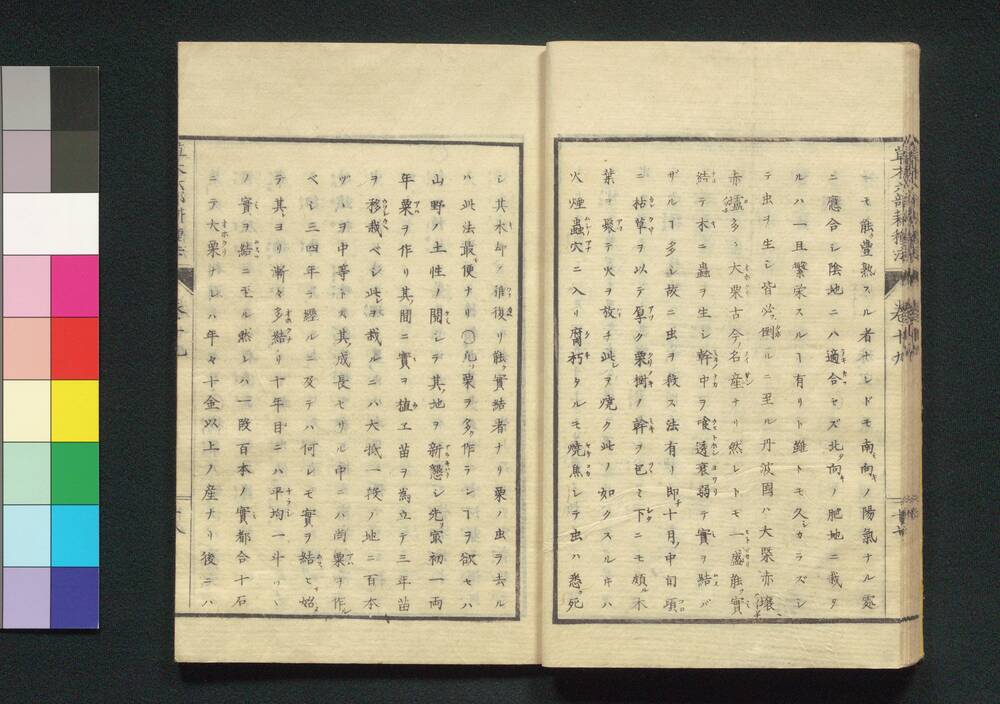 ニモ能豐熟スル者ナレドモ南向キノ陽氣ナル處
ニ應合シ陰地ニハ適合セズ北向ノ肥地ニ栽タ
ルハ一旦繁榮スルヿ有リト雖トモ久シカラズシ
テ虫ヲ生シ皆必倒ルニ至ル丹波國ハ大槩赤壤
赤壚多ク大栗古今名産ナリ然レトモ一盛能實
結テ木ニ蟲ヲ生シ幹中ヲ喰透衰弱テ實ヲ結バ
ザルヿ多シ故ニ虫ヲ殺ス法有リ即十月中旬頃
ニ枯草ヲ以テ厚ク栗樹ノ幹ヲ包ミ下ニモ頗木
葉ヲ聚テ火ヲ放チ此ヲ燒ク此ノ如クスルキハ
火煙蟲穴ニ入リ腐朽タルモ燒焦シテ虫ハ悉死
シ其木却テ復リ能實結者ナリ栗ノ虫ヲ去ル
ハ此法最便ナリ○凡栗ヲ多作ランヿヲ欲セハ
山野ノ土性ノ閲シテ其地ヲ新懇シ先最初一兩
年粟ヲ作リ其間ニ實ヲ植ヱ苗ヲ嵩立テ三年苗
ヲ移栽ベシ此ヲ栽ルニハ大抵一段ノ地ニ百本
ヅヽヲ中等トス其成長セサル中ニハ尚粟ヲ作ル
ベシ三四年ヲ經ルニ及テハ何レモ實ヲ結ヒ始
テ其ヨリ漸々多結リ十年目ニハ平均一斗ツヽ
ノ實ヲ結ニ至ル然レハ一段百本ノ實都合十石
ニテ大栗ナレハ年々十金以上ノ産ナリ後ニハ
草木六部耕種法
卷十九